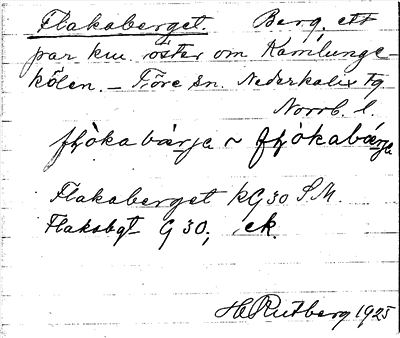 Flakaberget. Berg, ett
par km öster om Kamlunge-
kölen. – Töre sn. Nederkalix tg
Norrb. l.
Flakaberget kG30 S.M.
Flakabgt G 30; ek.
H Rutberg 1925